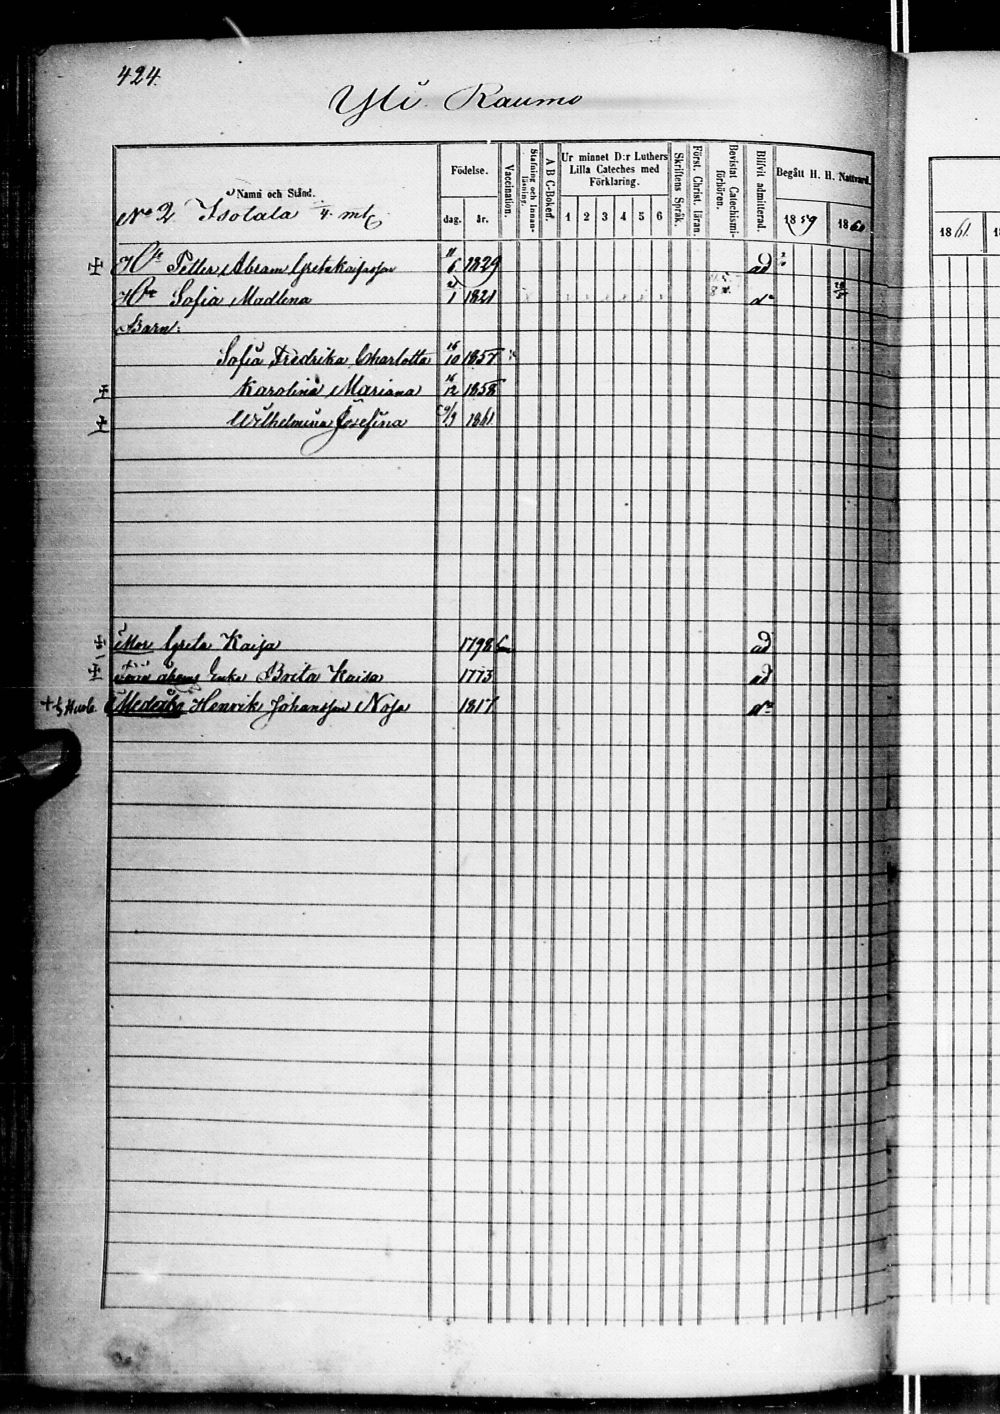 424.
Yli Raumo
Namn och Stånd.
Födelse.
dag. år.
Vaccination.
Stafning och Innanläsning.
A B C-Boken.
Ur minnet D:r Luthers Lilla Cateches med Förklaring.
1 2 3 4 5 6
Skriftens Språk.
Först. Christ. läran.
Bevistat Catechismiförhören.
Blifvit admitterad.
Begått H. H. Nattvard.
1859 1860
1861
No 2 Isotala
Petter Abram 6 1829 ad
Sofia Madlena 1 1821
Barn:
Sofia Fredrika Charlotta 16/10 1857
Karolina Mariana 16/12 1858
Wilhelmina Josefina 1861
Mor Greta Kaisa 1798 ad
Enka Brita Kaisa 1773 ad
Henrik Johansson 1817